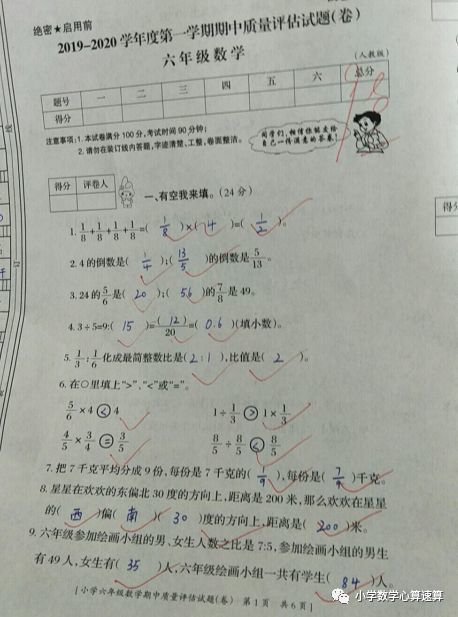 绝密★启用前
2019-2020学年度第一学期期中质量评估试题(卷)
六年级数学
(人教版)
题号 一 二 三 四 五 六 总分
得分
98
注意事项:1.本试卷满分100分,考试时间90分钟;
2.请勿在装订线内答题,字迹清楚、工整,卷面整洁。
同学们,相信你能交给
自己一份满意的答卷!
得分 评卷人
一、有空我来填。(24分)
1. 1/8+1/8+1/8+1/8=( 1/8 )×( 4 )=( 1/2 )。
2. 4的倒数是( 1/4 );( 13/5 )的倒数是5/13。
3. 24的5/6是( 20 );( 56 )的7/8是49。
4. 3÷5=9:( 15 )=( 12 )/20=( 0.6 )(填小数)。
5. 1/3:1/6化成最简整数比是( 2:1 ),比值是( 2 )。
6. 在○里填上“>”、“<”或“=”。
5/6×4 < 4 1÷1/3 > 1×1/3
4/5×3/4 = 3/5 8/5÷8/5 < 8/5
7. 把7千克平均分成9份,每份是7千克的( 1/9 ),每份是( 7/9 )千克。
8. 星星在欢欢的东偏北30度的方向上,距离是200米,那么欢欢在星星
的( 西 )偏( 南 )( 30 )度的方向上,距离是( 200 )米。
9. 六年级参加绘画小组的男、女生人数之比是7:5,参加绘画小组的男生
有49人,女生有( 35 )人,六年级绘画小组一共有学生( 84 )人。
[小学六年级数学期中质量评估试题(卷) 第1页 共6页]
小学数学心算速算
得分